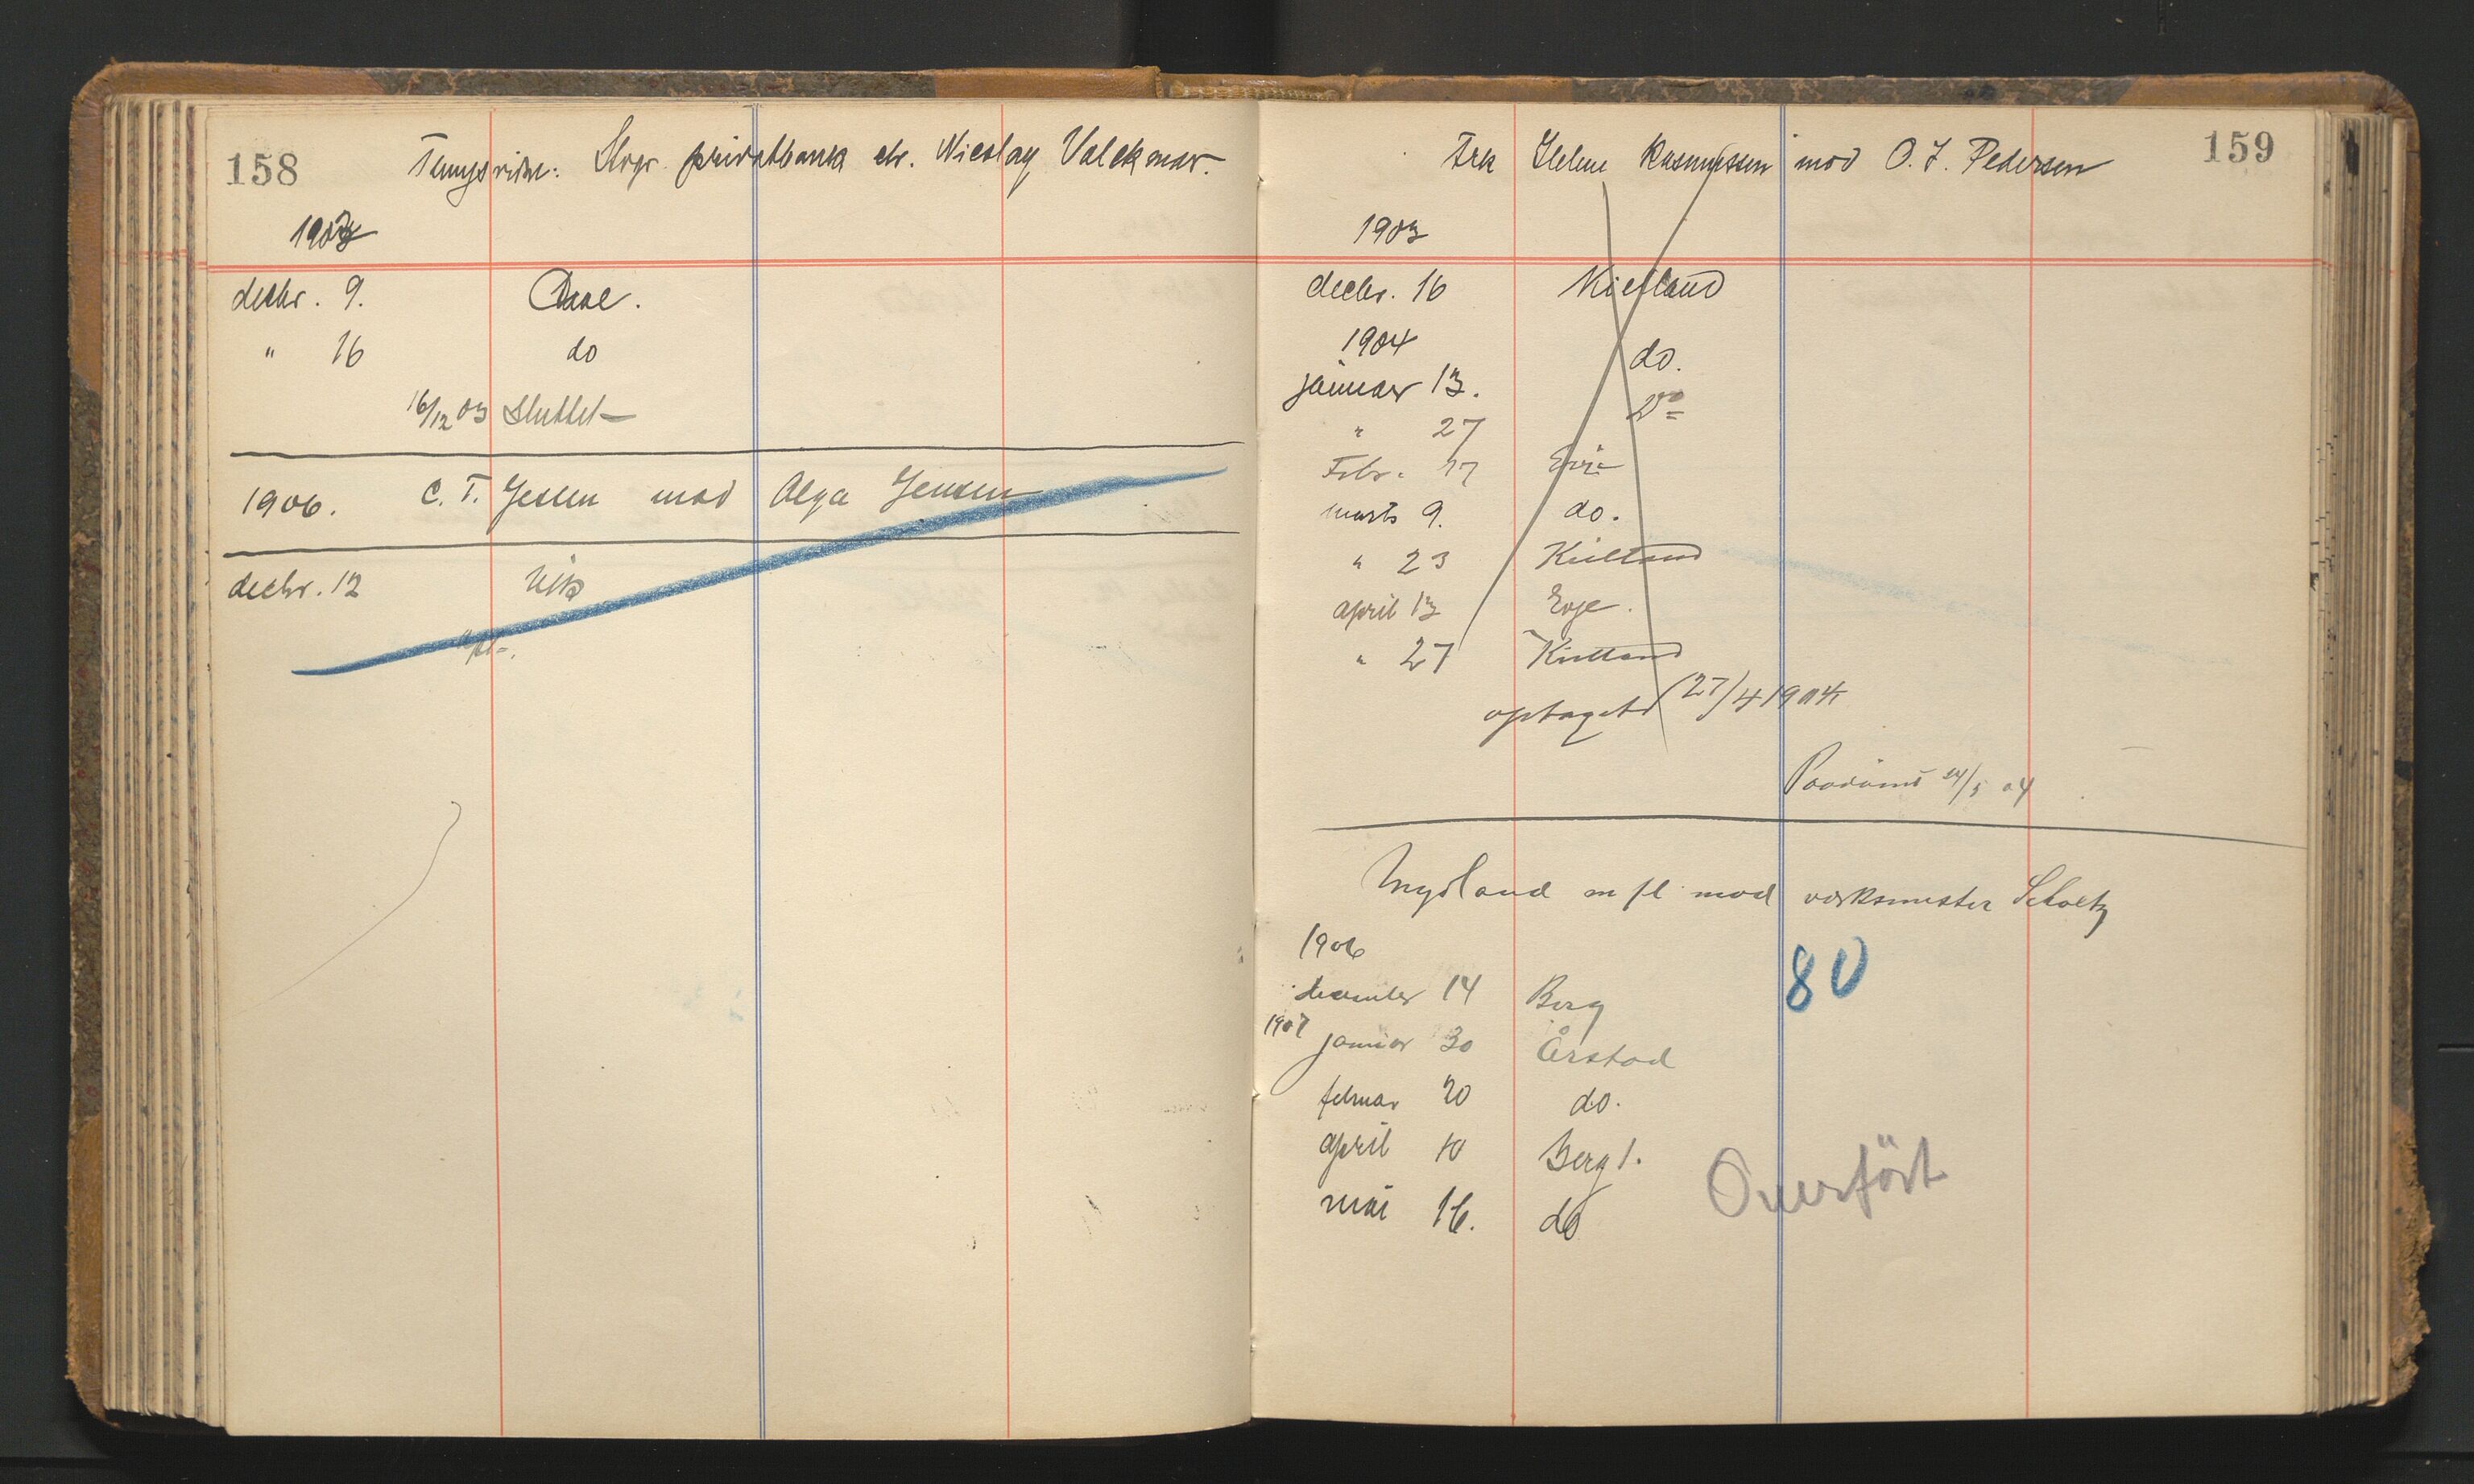 158
Stvgr. privatbank ctr. Nicolay Valckmar.
1903
decbr. 9. Daae.
" 16 do
16/12 03 Sluttet
1906. C. T. Jessen mod Olga Jensen
decbr. 12 Vik
159
Frk Helene Rasmussen mod O. J. Pedersen
1903
decbr. 16 Kielland
1904
januar 13. do.
" 27 Do
Febr. 17 Evje
marts 9. do.
" 23 Kielland
april 13 Evje.
" 27 Kielland
optaget 27/4 1904
Paadømt 24/5 04
Nygland m fl mod værksmester Scholtz
1906 80
december 14 Berg
1907 januar 30 Årstad
februar 20 do.
april 10 Berg 1.
mai 16. do
Overfört